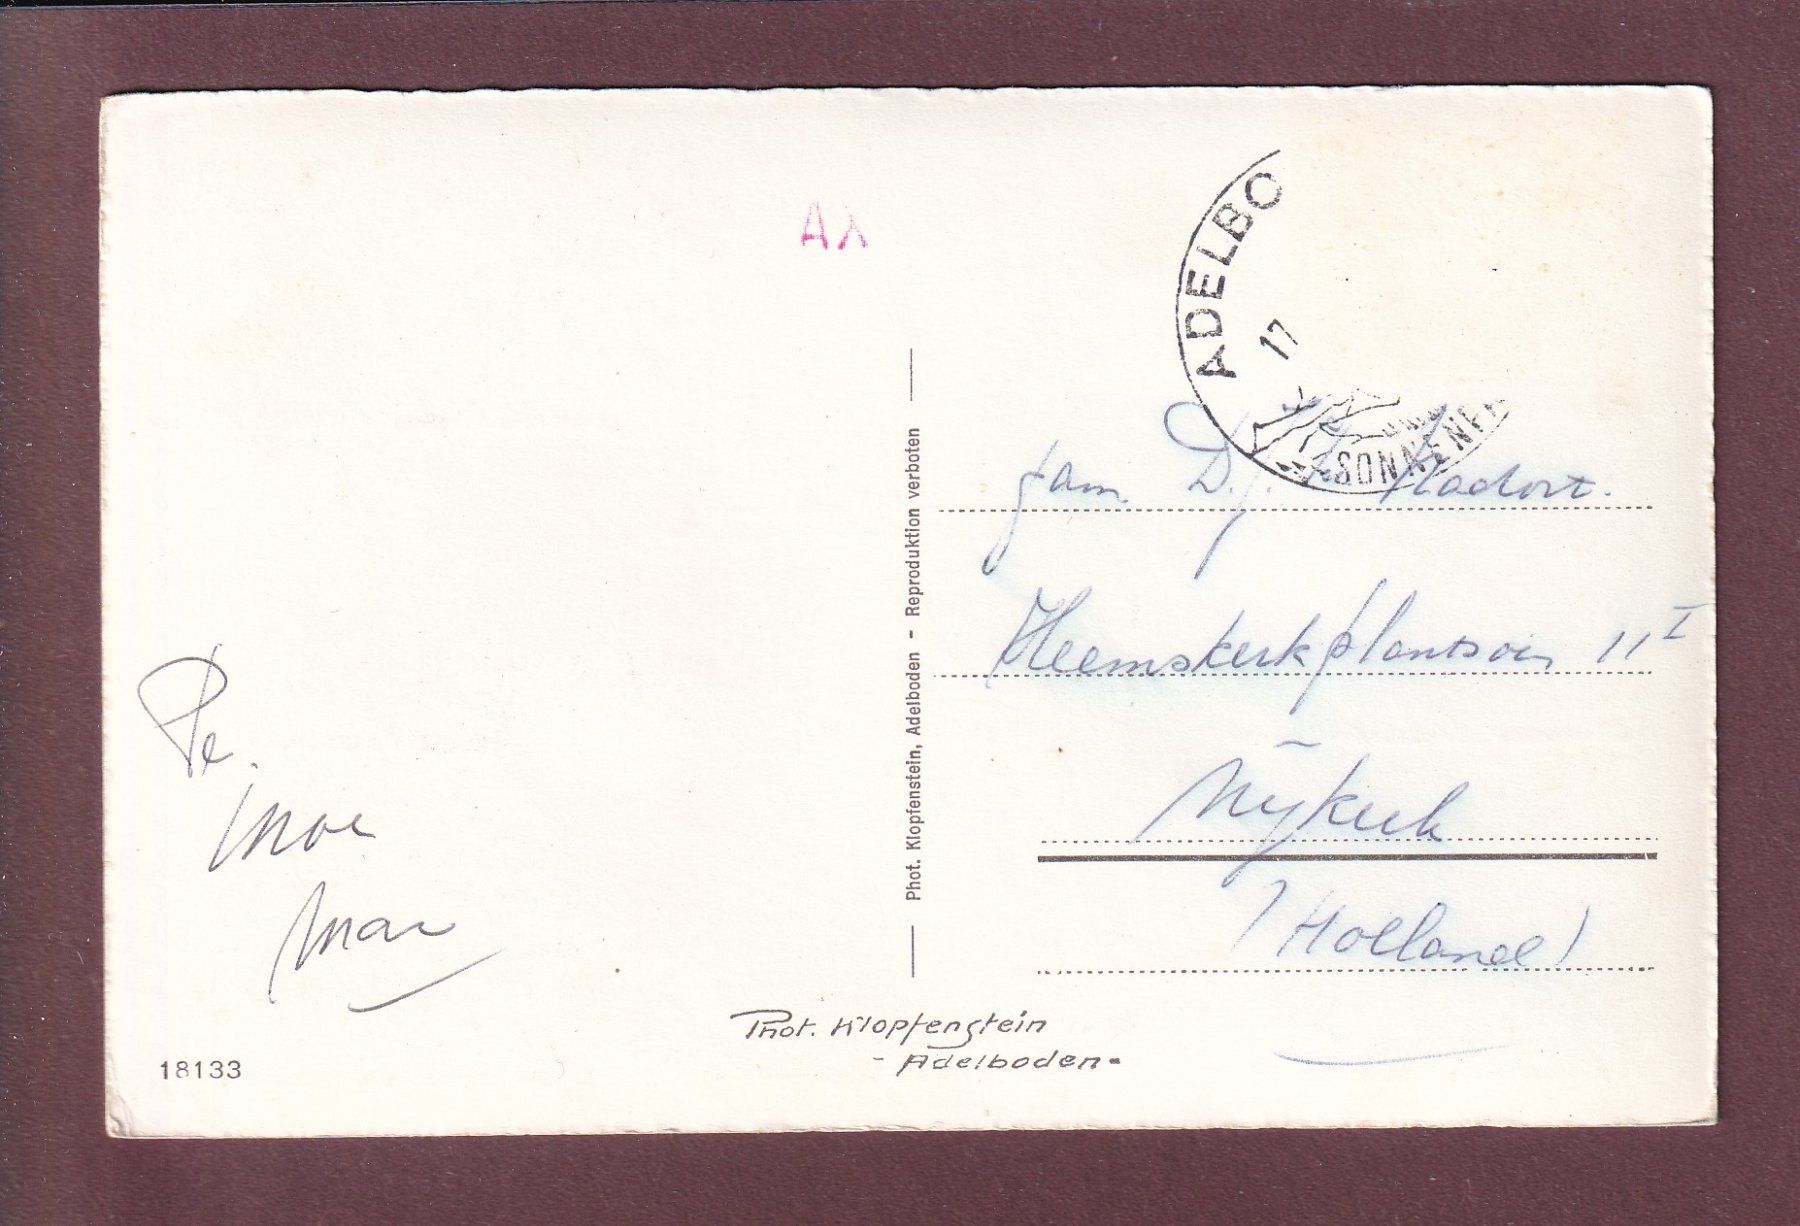 AX
ADELBO
17
SONNENF
fam. D.J.
Heemskerkplantsoen 11 I
Nijkerk
(Holland)
Pe.
Moe
Mar
Phot. Klopfenstein, Adelboden - Reproduktion verboten
Phot. Klopfenstein
- Adelboden -
18133